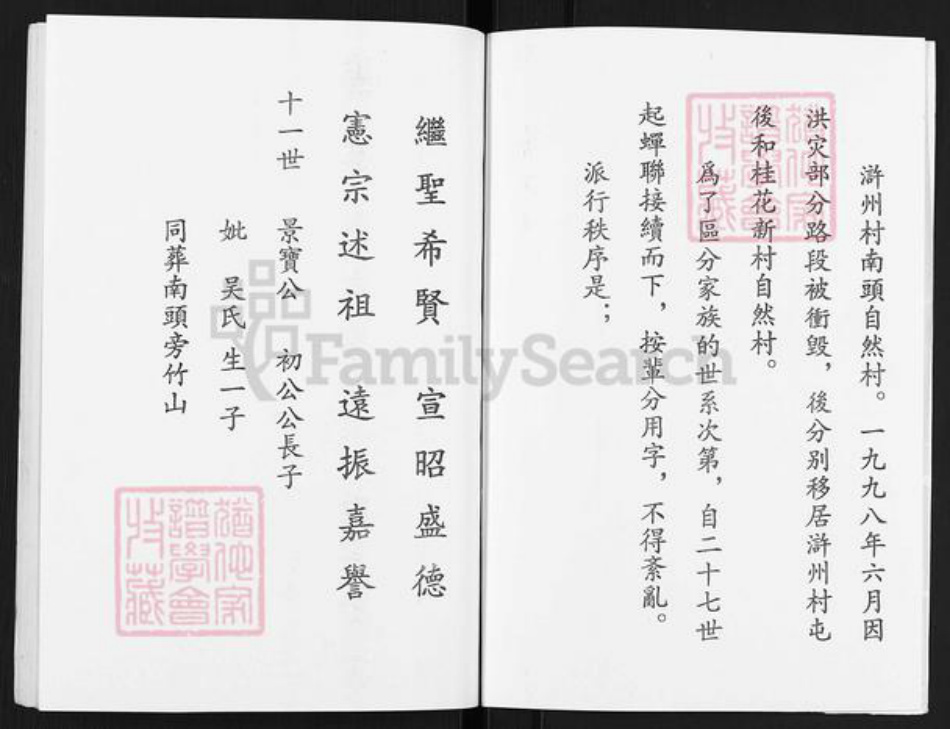 滸州村南頭自然村。一九九八年六月因
洪灾部分路段被衝毀，後分别移居滸州村屯
後和桂花新村自然村。
爲了區分家族的世系次第，自二十七世
起蟬聯接續而下，按輩分用字，不得紊亂。
派行秩序是；
繼聖希賢 宣昭盛德
憲宗述祖 遠振嘉譽
十一世 景寶公 初公公長子
妣 吴氏 生一子
同葬南頭旁竹山
FamilySearch
猶他家
譜學會
收藏
猶他家
譜學會
收藏